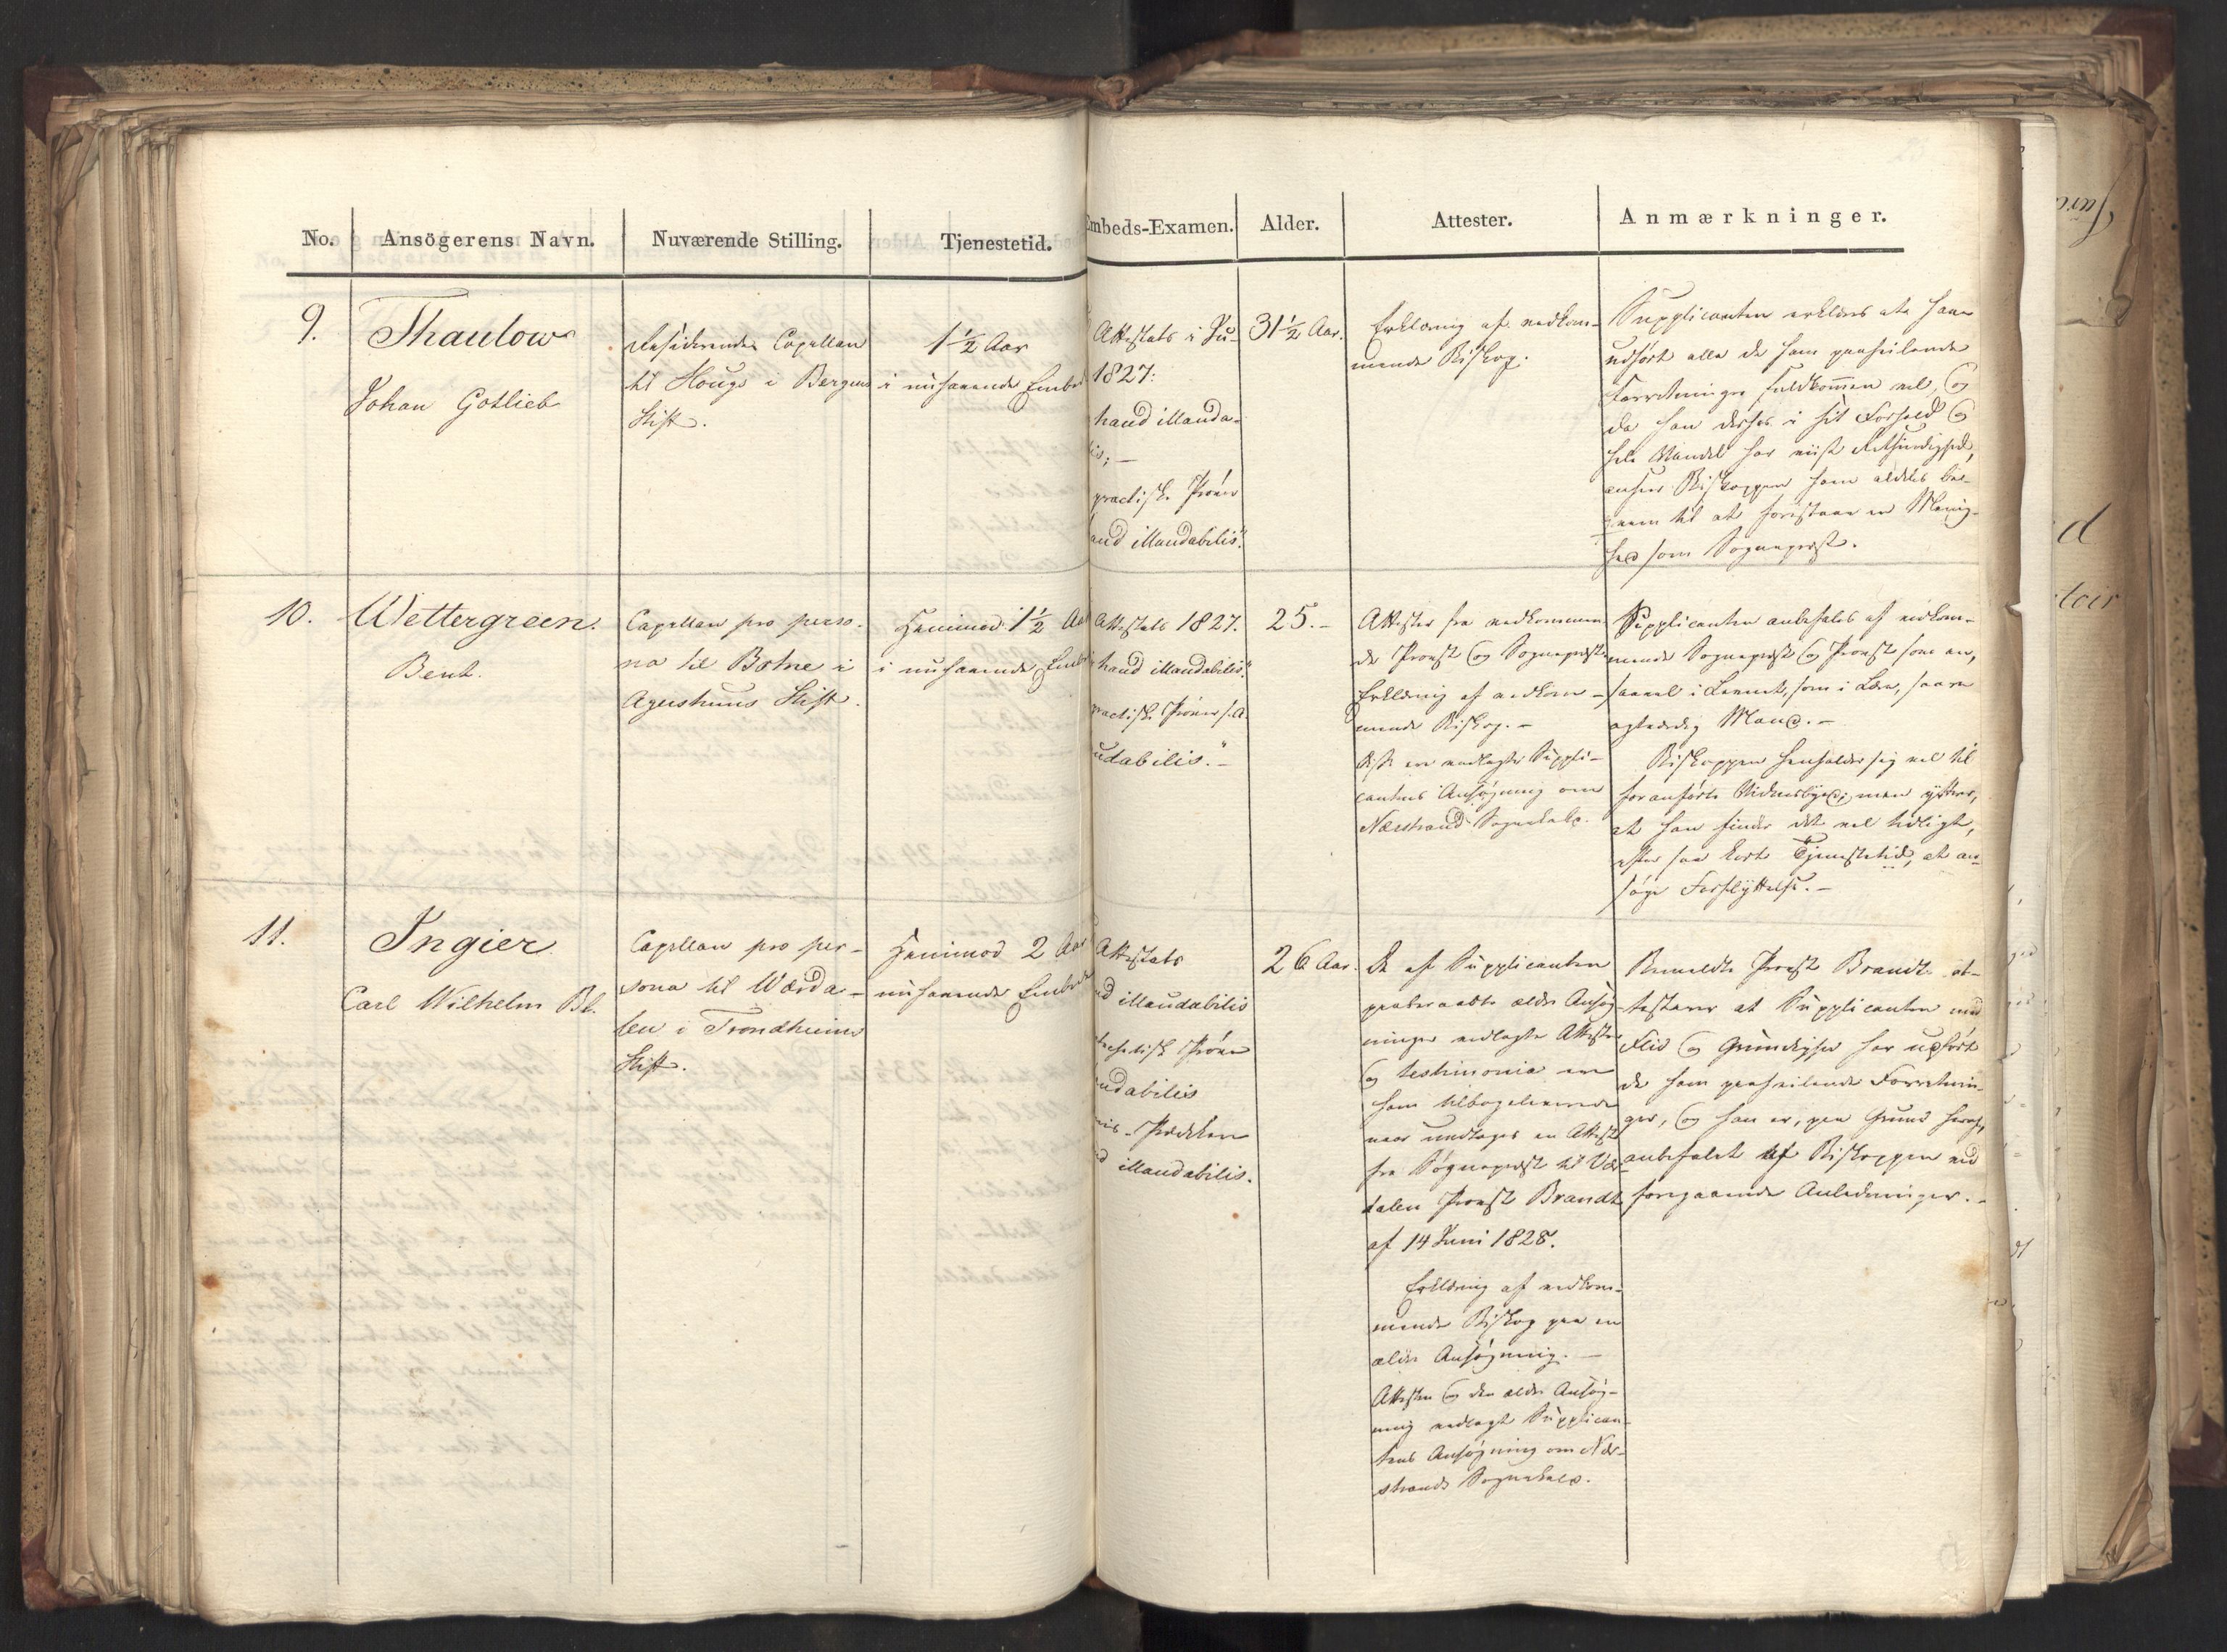 No.
Ansögerens Navn.
Nuværende Stilling.
Tjenestetid.
Embeds-Examen.
Alder.
Attester.
Anmærkninger.
9.
Thaulow
Johan Gotlieb
Residerende Capellan
til Hougs i Bergens
Stift.
1½ Aar
i nuhavende Embed
Attestats i Ju-
1827:
haud illauda-
is; —
practisk Prøve
aud illaudabilis".
31½ Aar.
Erklæring af vedkom-
mende Biskop.
Supplicanten erklæres at have
udført alle de ham paahvilende
Forretninger fuldkommen vel, og
da han derhos i sit Forhold og
hele Vandel har viist Retsindighed,
anseer Biskoppen ham aldeles be-
qvem til at forestaae en Menig-
hed som Sognepræst.
10.
Wettergreen.
Bent.
Capellan pro perso-
na til Botne i
Agershuus Stift.
Henimod 1½ Aar
i nuhavende Embe
Attestats 1827.
haud illaudabilis".
practisk Prøve s. A.
udabilis." –
25. –
Attester fra vedkommen-
de Provst og Sognepræst
Erklæring af vedkom-
mende Biskop. –
disse ere vedlagte Suppli-
cantens Ansøgning om
Nærstrand Sognekald.
Supplicanten anbefales af vedkom-
mende Sognepræst og Provst som en,
saavel i Levnet, som i Lære, saare
agtværdig Mand. –
Biskoppen henholder sig vel til
foranførte Vidnesbyrd; men yttrer,
at han finder det vel tidligt,
efter saa kort Tjenestetid, at an-
søge Forflyttelse. –
11.
Ingier
Carl Wilhelm Bl.
Capellan pro per-
sona til Værda-
len i Trondhiems
Stift.
Henimod 2 Aar
nuhavende Embede
Attestats
ud illaudabilis
techetisk Prøve
udabilis
mis-Prædiken
d illaudabilis.
26 Aar.
De af Supplicanten
paaberaabte ældre Ansøg-
ninger vedlagte Attester
og testimonia ere
ham tilbageleverede
naar undtages en Attest
fra Sognepræst til Vær-
dalen Provst Brandt
af 14 Juni 1828.
Erklæring af vedkom-
mende Biskop paa en
ældre Ansøgning. —
Attesten og den ældre Ansøg-
ning vedlagt Supplican-
tens Ansøgning om Nær-
strands Sognekald.
Bemeldte Provst Brandt at-
testerer at Supplicanten med
Flid og Grundighed har udført
de ham paahvilende Forretnin-
ger, og han er, paa Grund heraf,
anbefalet af Biskoppen ved
foregaaende Anledninger. –